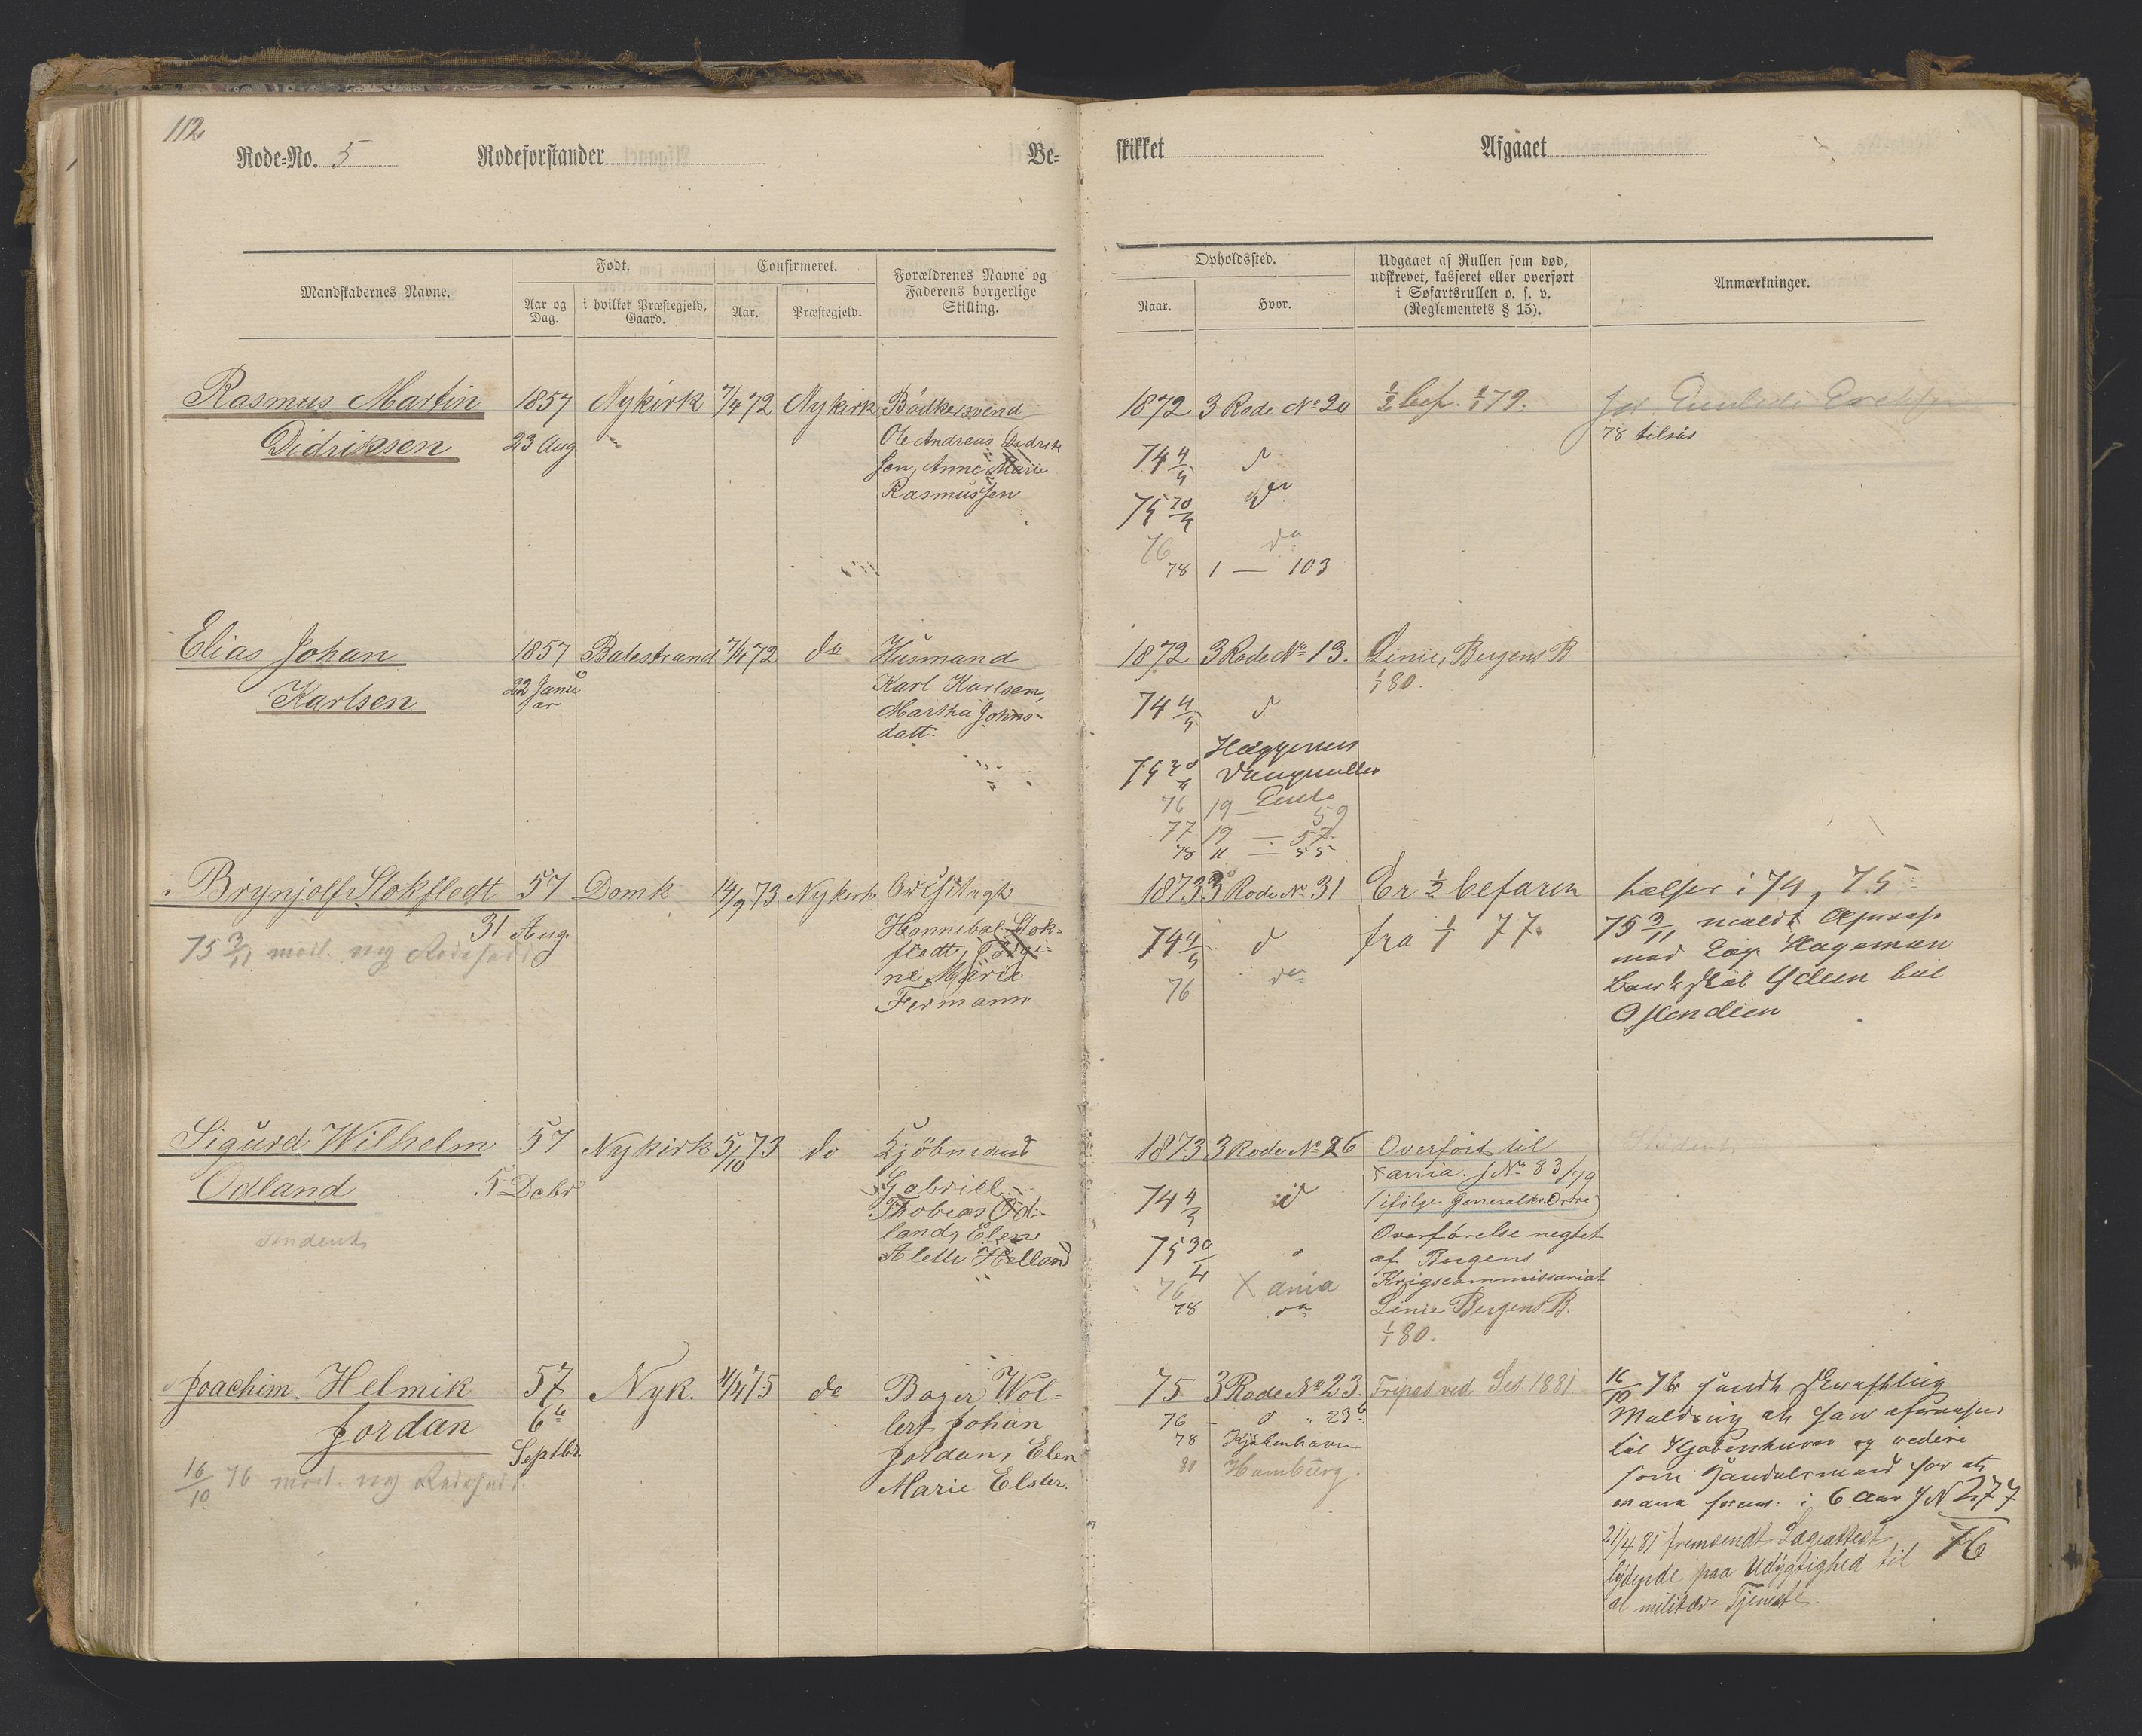 112
Rode=No. 5 Rodeforstander Be=
skikket Afgaaet
Mandskabernes Navne.
Født.
Aar og Dag.
i hvilket Præstegjeld, Gaard.
Confirmeret.
Aar.
Præstegjeld.
Forældrenes Navne og
Faderens borgerlige
Stilling.
Opholdssted.
Naar.
Hvor.
Udgaaet af Rullen som død,
udskrevet, kasseret eller overført
i Søfartsrullen o. s. v.
(Reglementets § 15).
Anmærkninger.
Rasmus Martin 1857 Nykirk 7/4 72 Nykirk Bødkersvend
Didriksen 23 Aug
Ole Andreas Didrik
sen, Anne Marie
Rasmussen
1872 3 Rode No 20 1/2 bef. 1/1 79.
78 tilsøs
74 4/4 d
75 20/4 do
76 do
78 1 — 103
Elias Johan 1857 Balestrand 7/4 72 do Husmand
Karlsen 22 Janu
ar
Karl Karlsen,
Martha Johns-
datt:
1872 3 Rode No 13. Linie, Bergens B.
1/1 80.
74 4/4 d
76 19 —
77 19 — 57
78 11 — 55
Brynjolf Stokfledt 57 Domk 14/9 73 Nykirk
31 Aug.
75 3/11 ny
Hannibal Stok-
fledt,
ne Marie
Fermann
1873 3 Rode No 31 Er 1/2 befaren
fra 1/1 77.
i 74, 75
75 3/11 meldt
med Hageman
til
74 4/4 d
76 do
Sigurd Wilhelm 57 Nykirk 5/10 73 do Kjøbmand
Odland 5 Debr
Student
Gabriel
Thobias Od-
land, Elen
Aletta Helland
1873 3 Rode No 26 Overført til
Xania. J No 83/79
(ifølge Generalkr. Ordre)
Overførelse negtet
af Bergens
Krigscommissariat
Linie Bergens B.
1/1 80.
Student
74 4/4 d
75 30/4
76 Xania
78 do
Joachim Helmik 57 Nyk. 11/4 75 do Bager Wol-
Jordan 6te
Septbr.
16/10 76 ny
lert Johan
Jordan, Elen
Marie Elster.
75 3 Rode No 23. Fripas ved Ses. 1881
76 — d 236
78 Kjøbenhavn
80 Hamburg.
16/10 76 sendt skriftlig
Melding at han afreiser
til Kjøbenhavn og videre
som Handelsmand for at
i 6 Aar J N 277
76
21/4 81 fremsendt Lægeattest
lydende paa Udygtighed til
al militær Tjeneste.